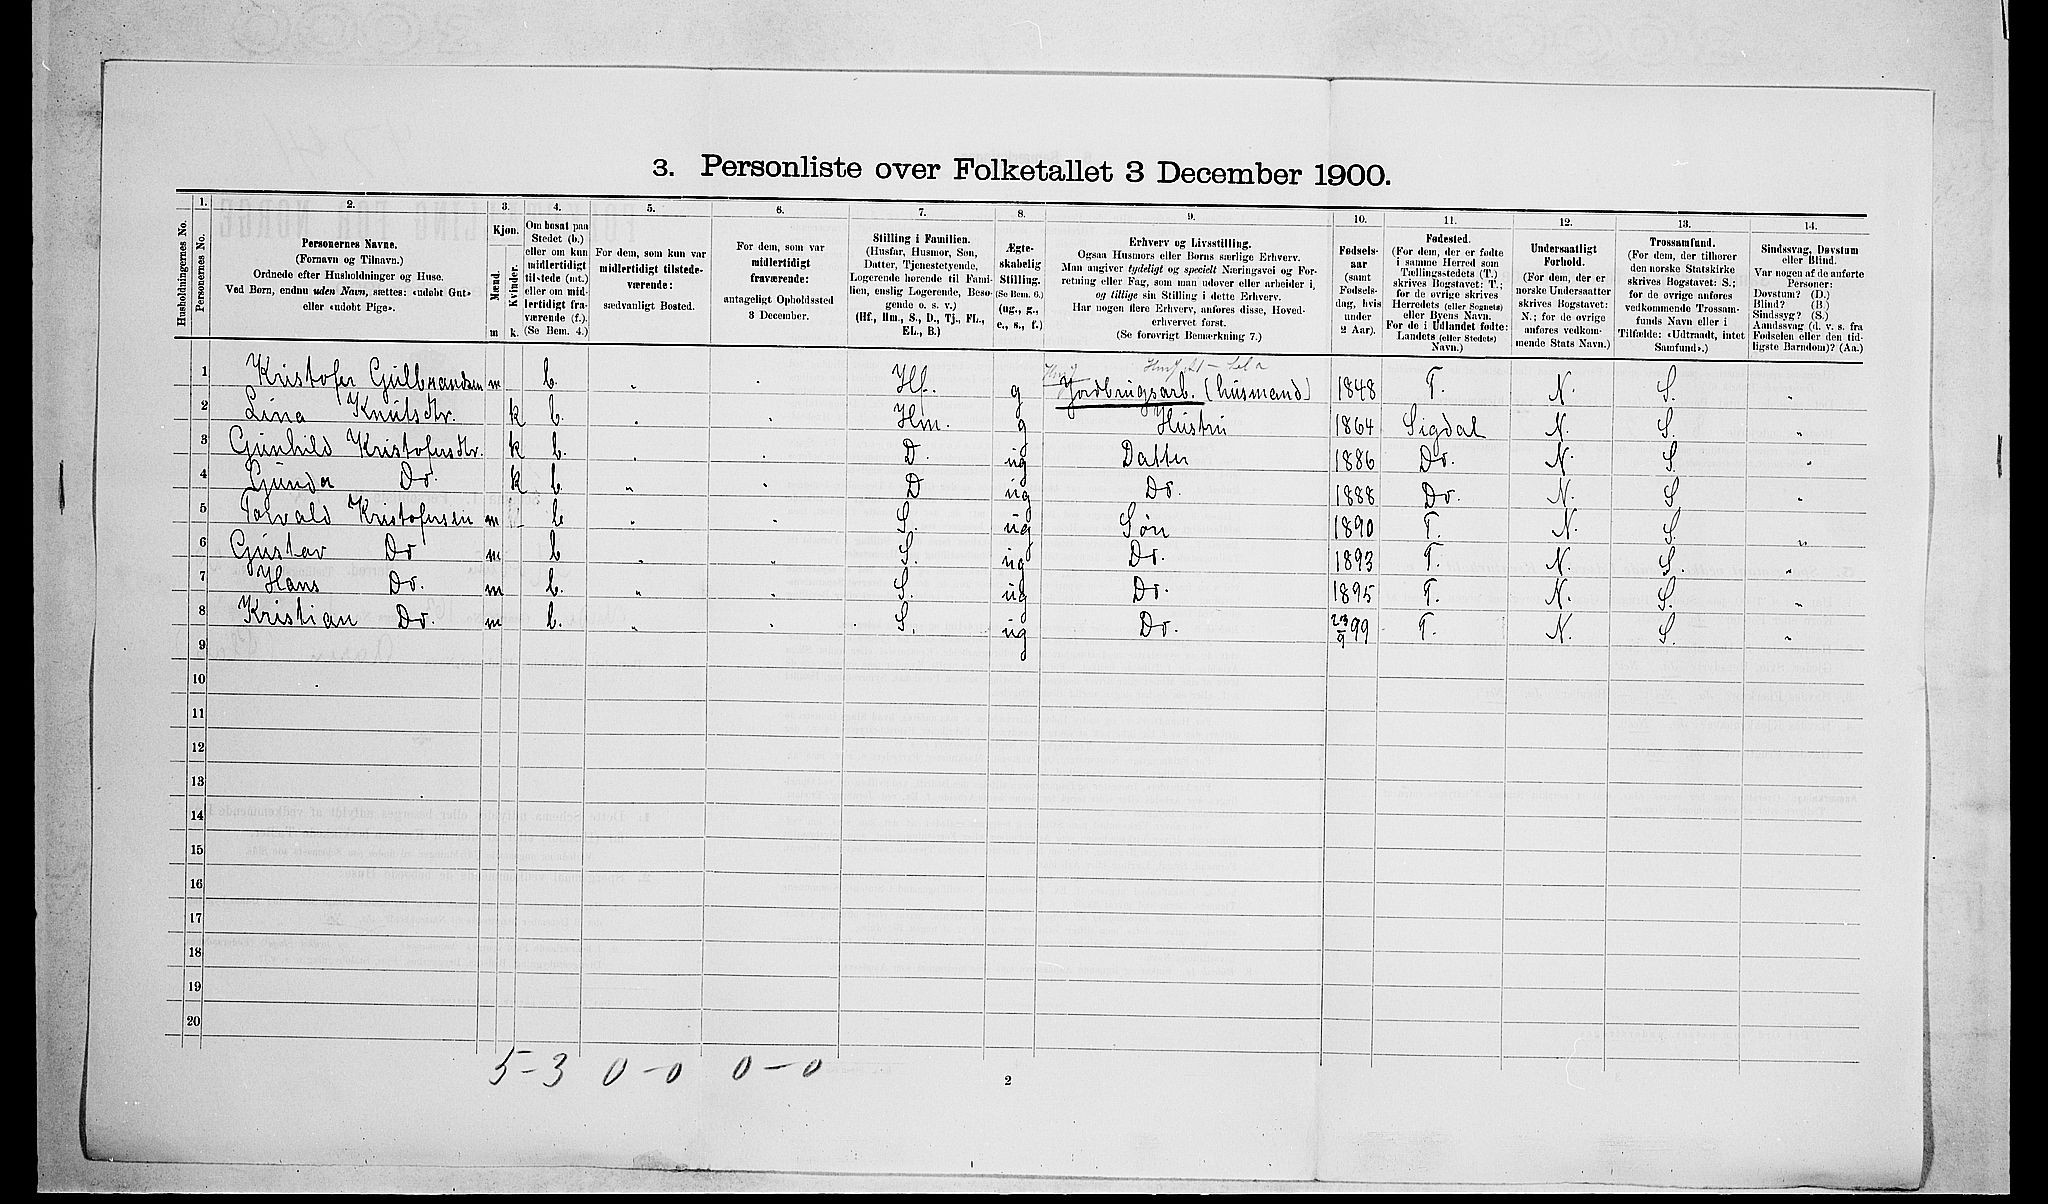 3. Personliste over Folketallet 3 December 1900.
1. 2. 3. 4. 5. 6. 7. 8. 9. 10. 11. 12. 13. 14.
Husholdningernes No.
Personernes No.
Personernes Navne.
(Fornavn og Tilnavn.)
Ordnede efter Husholdninger og Huse.
Ved Børn, endnu uden Navn, sættes: «udøbt Gut»
eller «udøbt Pige».
Kjøn.
Mænd.
Kvinder.
m k.
Om bosat paa
Stedet (b.)
eller om kun
midlertidigt
tilstede (mt.)
eller om mid-
lertidigt fra-
værende (f.).
(Se Bem. 4.)
For dem, som kun var
midlertidigt tilstede-
værende:
sædvanligt Bosted.
For dem, som var
midlertidigt
fraværende:
antageligt Opholdssted
3 December.
Stilling i Familien.
(Husfar, Husmor, Søn,
Datter, Tjenestetyende,
Logerende hørende til Fami-
lien, enslig Logerende, Besø-
gende o. s. v.)
(Hf., Hm., S., D., Tj., FL.,
EL., B.)
Ægte-
skabelig
Stilling.
(Se Bem. 6.)
(ug., g.,
e., s., f.)
Erhverv og Livsstilling.
Ogsaa Husmors eller Børns særlige Erhverv.
Man angiver tydeligt og specielt Næringsvei og For-
retning eller Fag, som man udøver eller arbeider i,
og tillige sin Stilling i dette Erhverv.
Har nogen flere Erhverv, anføres disse, Hoved-
erhvervet først.
(Se forøvrigt Bemerkning 7.)
Fødsels-
aar
(samt
Fødsels-
dag, hvis
under
2 Aar).
Fødested.
(For dem, der er fødte
i samme Herred som
Tællingsstedets (T.)
skrives Bogstavet: T.;
for de øvrige skrives
Herredets (eller Sognets)
eller Byens Navn.
For de i Udlandet fødte:
Landets (eller Stedets)
Navn.)
Undersaatligt
Forhold.
(For dem, der er
norske Undersaatter
skrives Bogstavet:
N.; for de øvrige
anføres vedkom-
mende Stats Navn.)
Trossamfund.
(For dem, der tilhører
den norske Statskirke
skrives Bogstavet: S.;
for de øvrige anføres
vedkommende Trossam-
funds Navn eller i
Tilfælde: «Udtraadt, intet
Samfund».)
Sindssvag, Døvstum
eller Blind.
Var nogen af de anførte
Personer:
Døvstum? (D.)
Blind? (B.)
Sindssyg? (S.)
Aandssvag (d. v. s. fra
Fødselen eller den tid-
ligste Barndom)? (Aa.)
1 Kristofer Gulbrandsen m b. " " Hf. g Jordbrugsarb. (husmand) 1848 T. N. S. "
2 Lina Knutsdtr. k b. " " Hm. g Hustru 1864 Sigdal N. S. "
3 Gunhild Kristofersdtr. k b. " " D. ug Datter 1886 Do. N. S. "
4 Gunda Do. k b. " " D ug Do. 1888 Do. N. S "
5 Torvald Kristofersen m b " " S. ug Søn 1890 T. N. S. "
6 Gustav Do m b " " S. ug Do. 1893 T. N. S. "
7 Hans Do. m b. " " S. ug Do. 1895 T. N. S. "
8 Kristian Do. m b. " " S. ug Do. 23/9 99 T. N. S. "
9
10
11
12
13
14
15
16
17
18
19
20
5-3 0-0 0-0
2